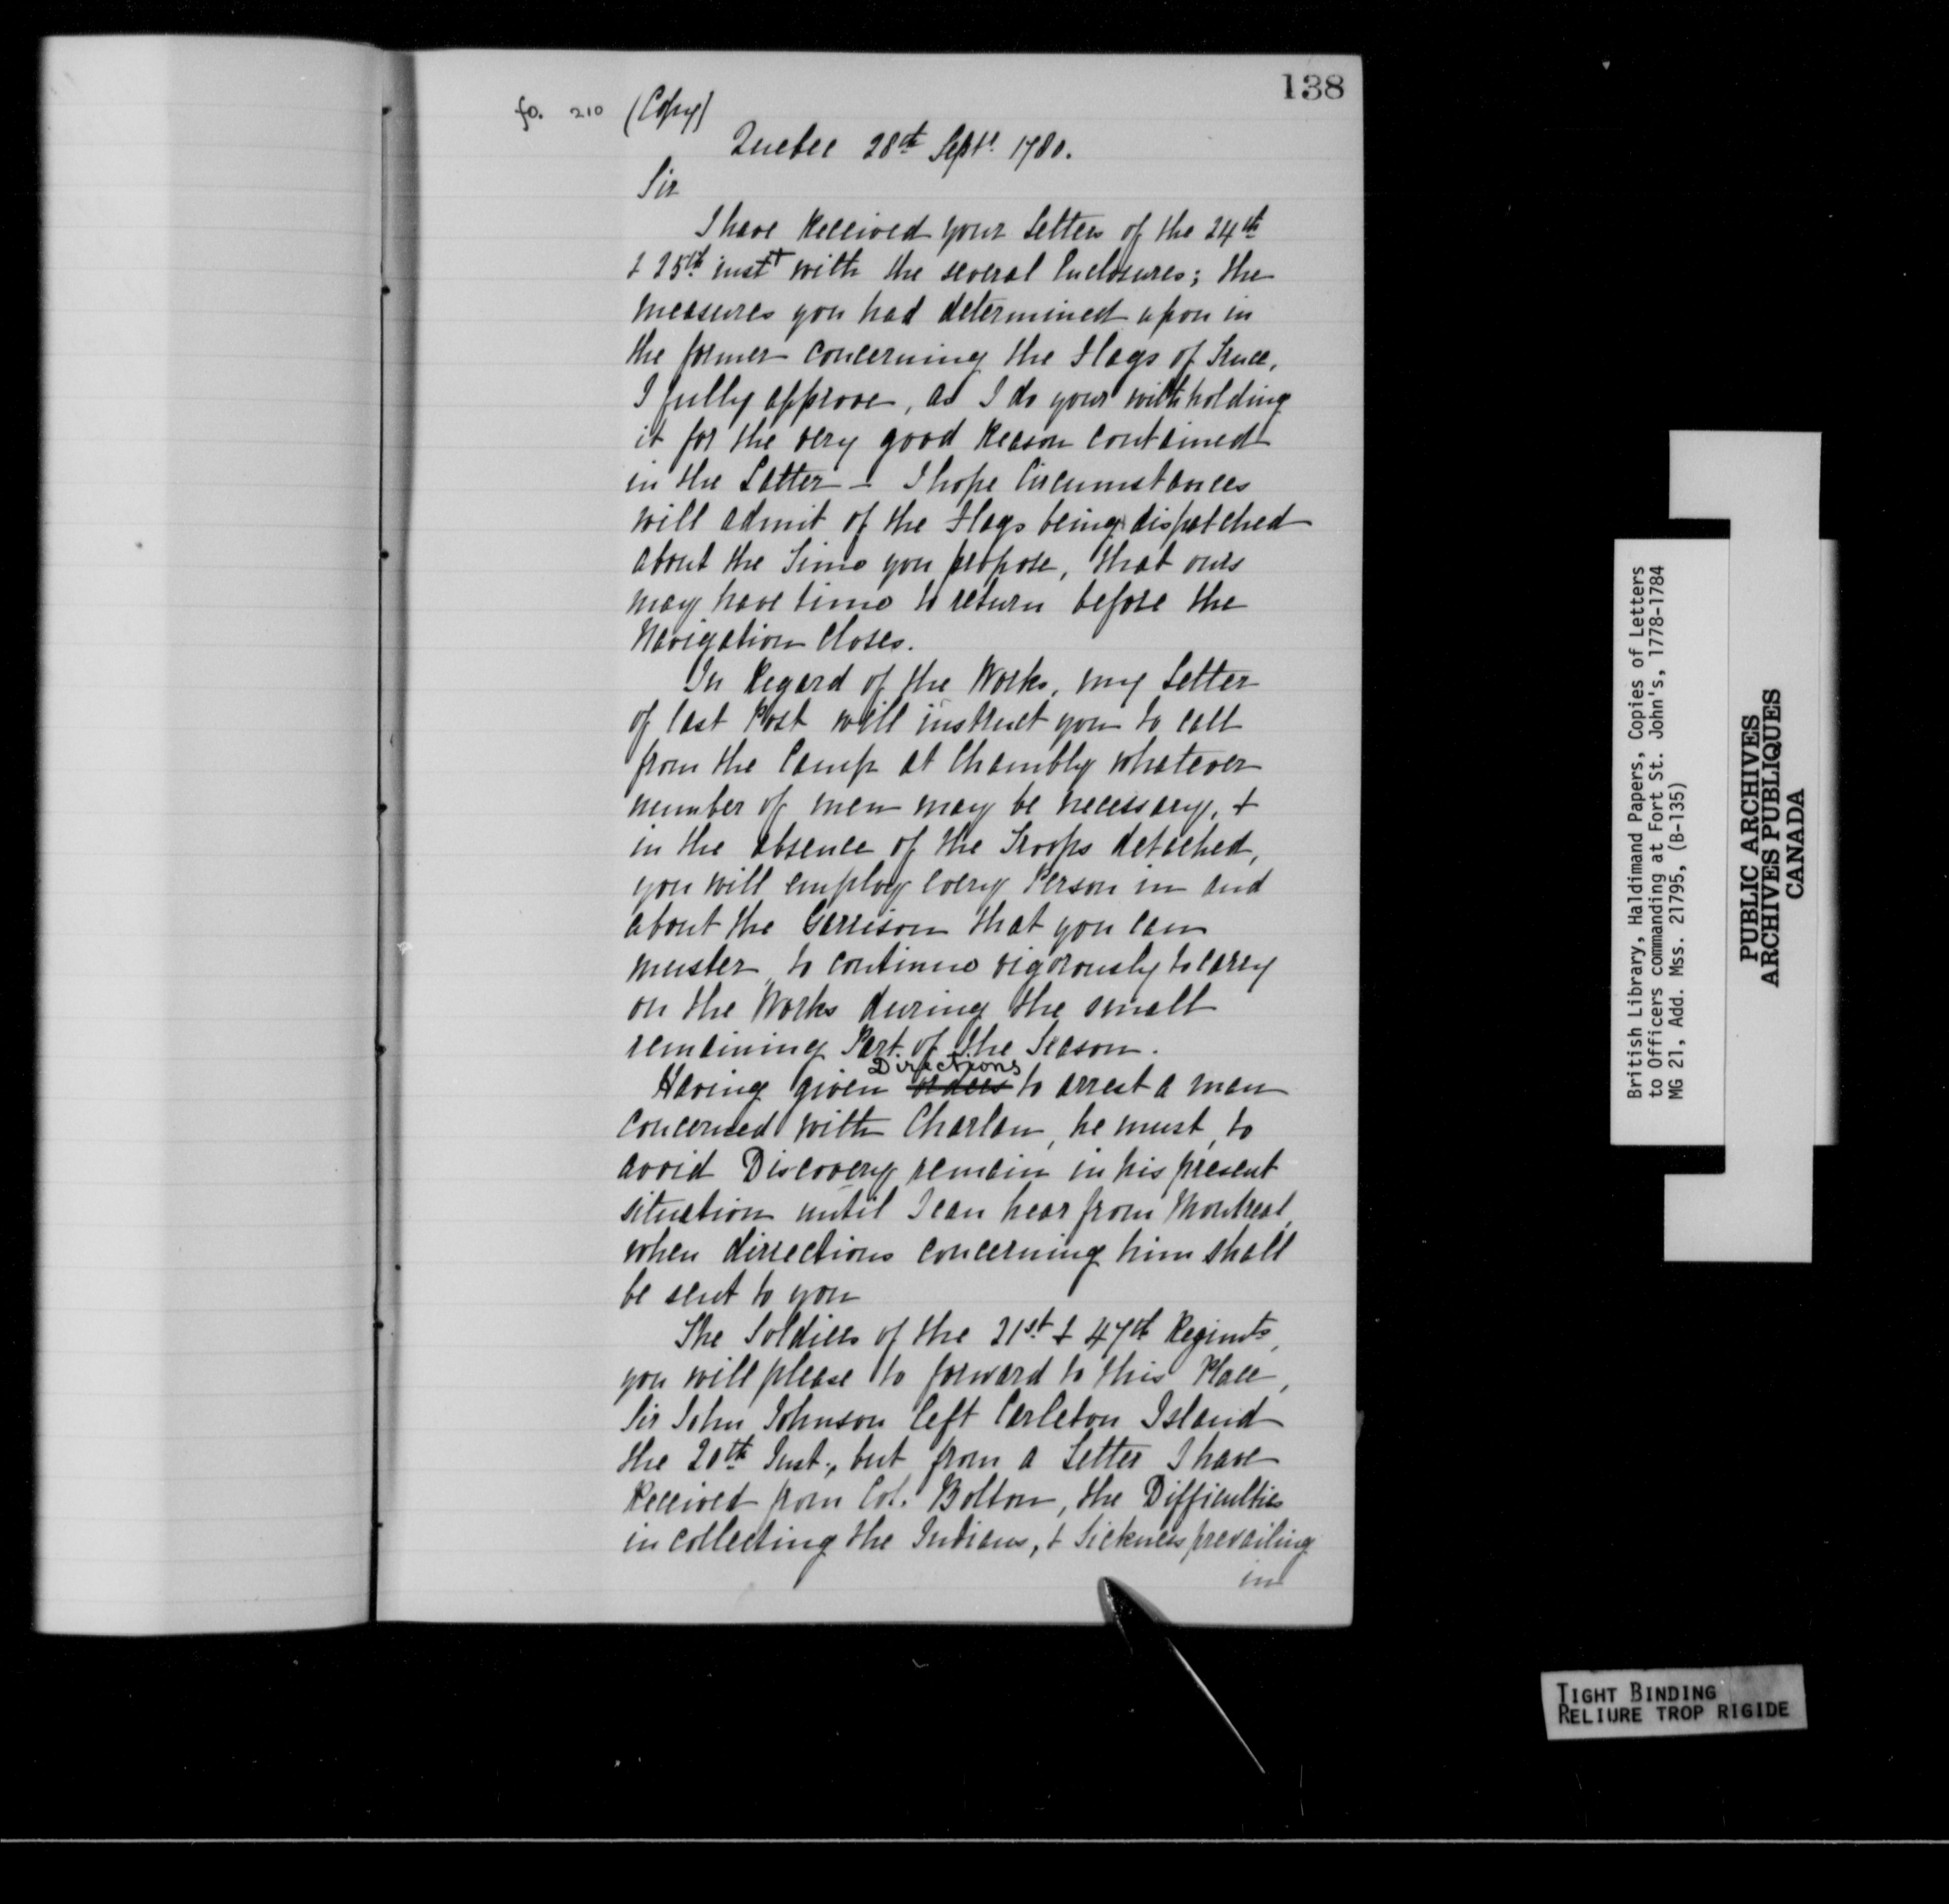 138
fo. 210 (Copy)
Quebec 28th Septr. 1780.
Sir
I have Received your Letters of the 24th
& 25th instt with the several Enclosures; the
measures you had determined upon in
the former concerning the Flags of Truce,
I fully approve, as I do your withholding
it for the very good Reason contained
in the Latter – I hope Circumstances
will admit of the Flags being dispatched
about the Time you propose, that ours
may have time to return before the
Navigation Closes.
In Regard of the Works, my Letter
of last Post will instruct you to call
from the Camp at Chambly whatever
number of men may be necessary, &
in the absence of the Troops detached,
you will employ every Person in and
about the Garrison that you can
muster, to continue vigorously to carry
on the Works during the small
remaining Part of the Season.
Directions
Having given orders to arrest a man
concerned with Charlan, he must, to
avoid Discovery remain in his present
situation until I can hear from Montreal,
when directions concerning him shall
be sent to you
The Soldiers of the 21st & 47th Regimts,
you will please to forward to this Place,
Sir John Johnson left Carleton Island
the 20th Inst., but from a Letter I have
Received from Col. Bolton, the Difficulties
in collecting the Indians, & Sickness prevailing
in
British Library, Haldimand Papers, Copies of Letters
to Officers commanding at Fort St. John's, 1778-1784
MG 21, Add. Mss. 21795, (B-135)
PUBLIC ARCHIVES
ARCHIVES PUBLIQUES
CANADA
TIGHT BINDING
RELIURE TROP RIGIDE